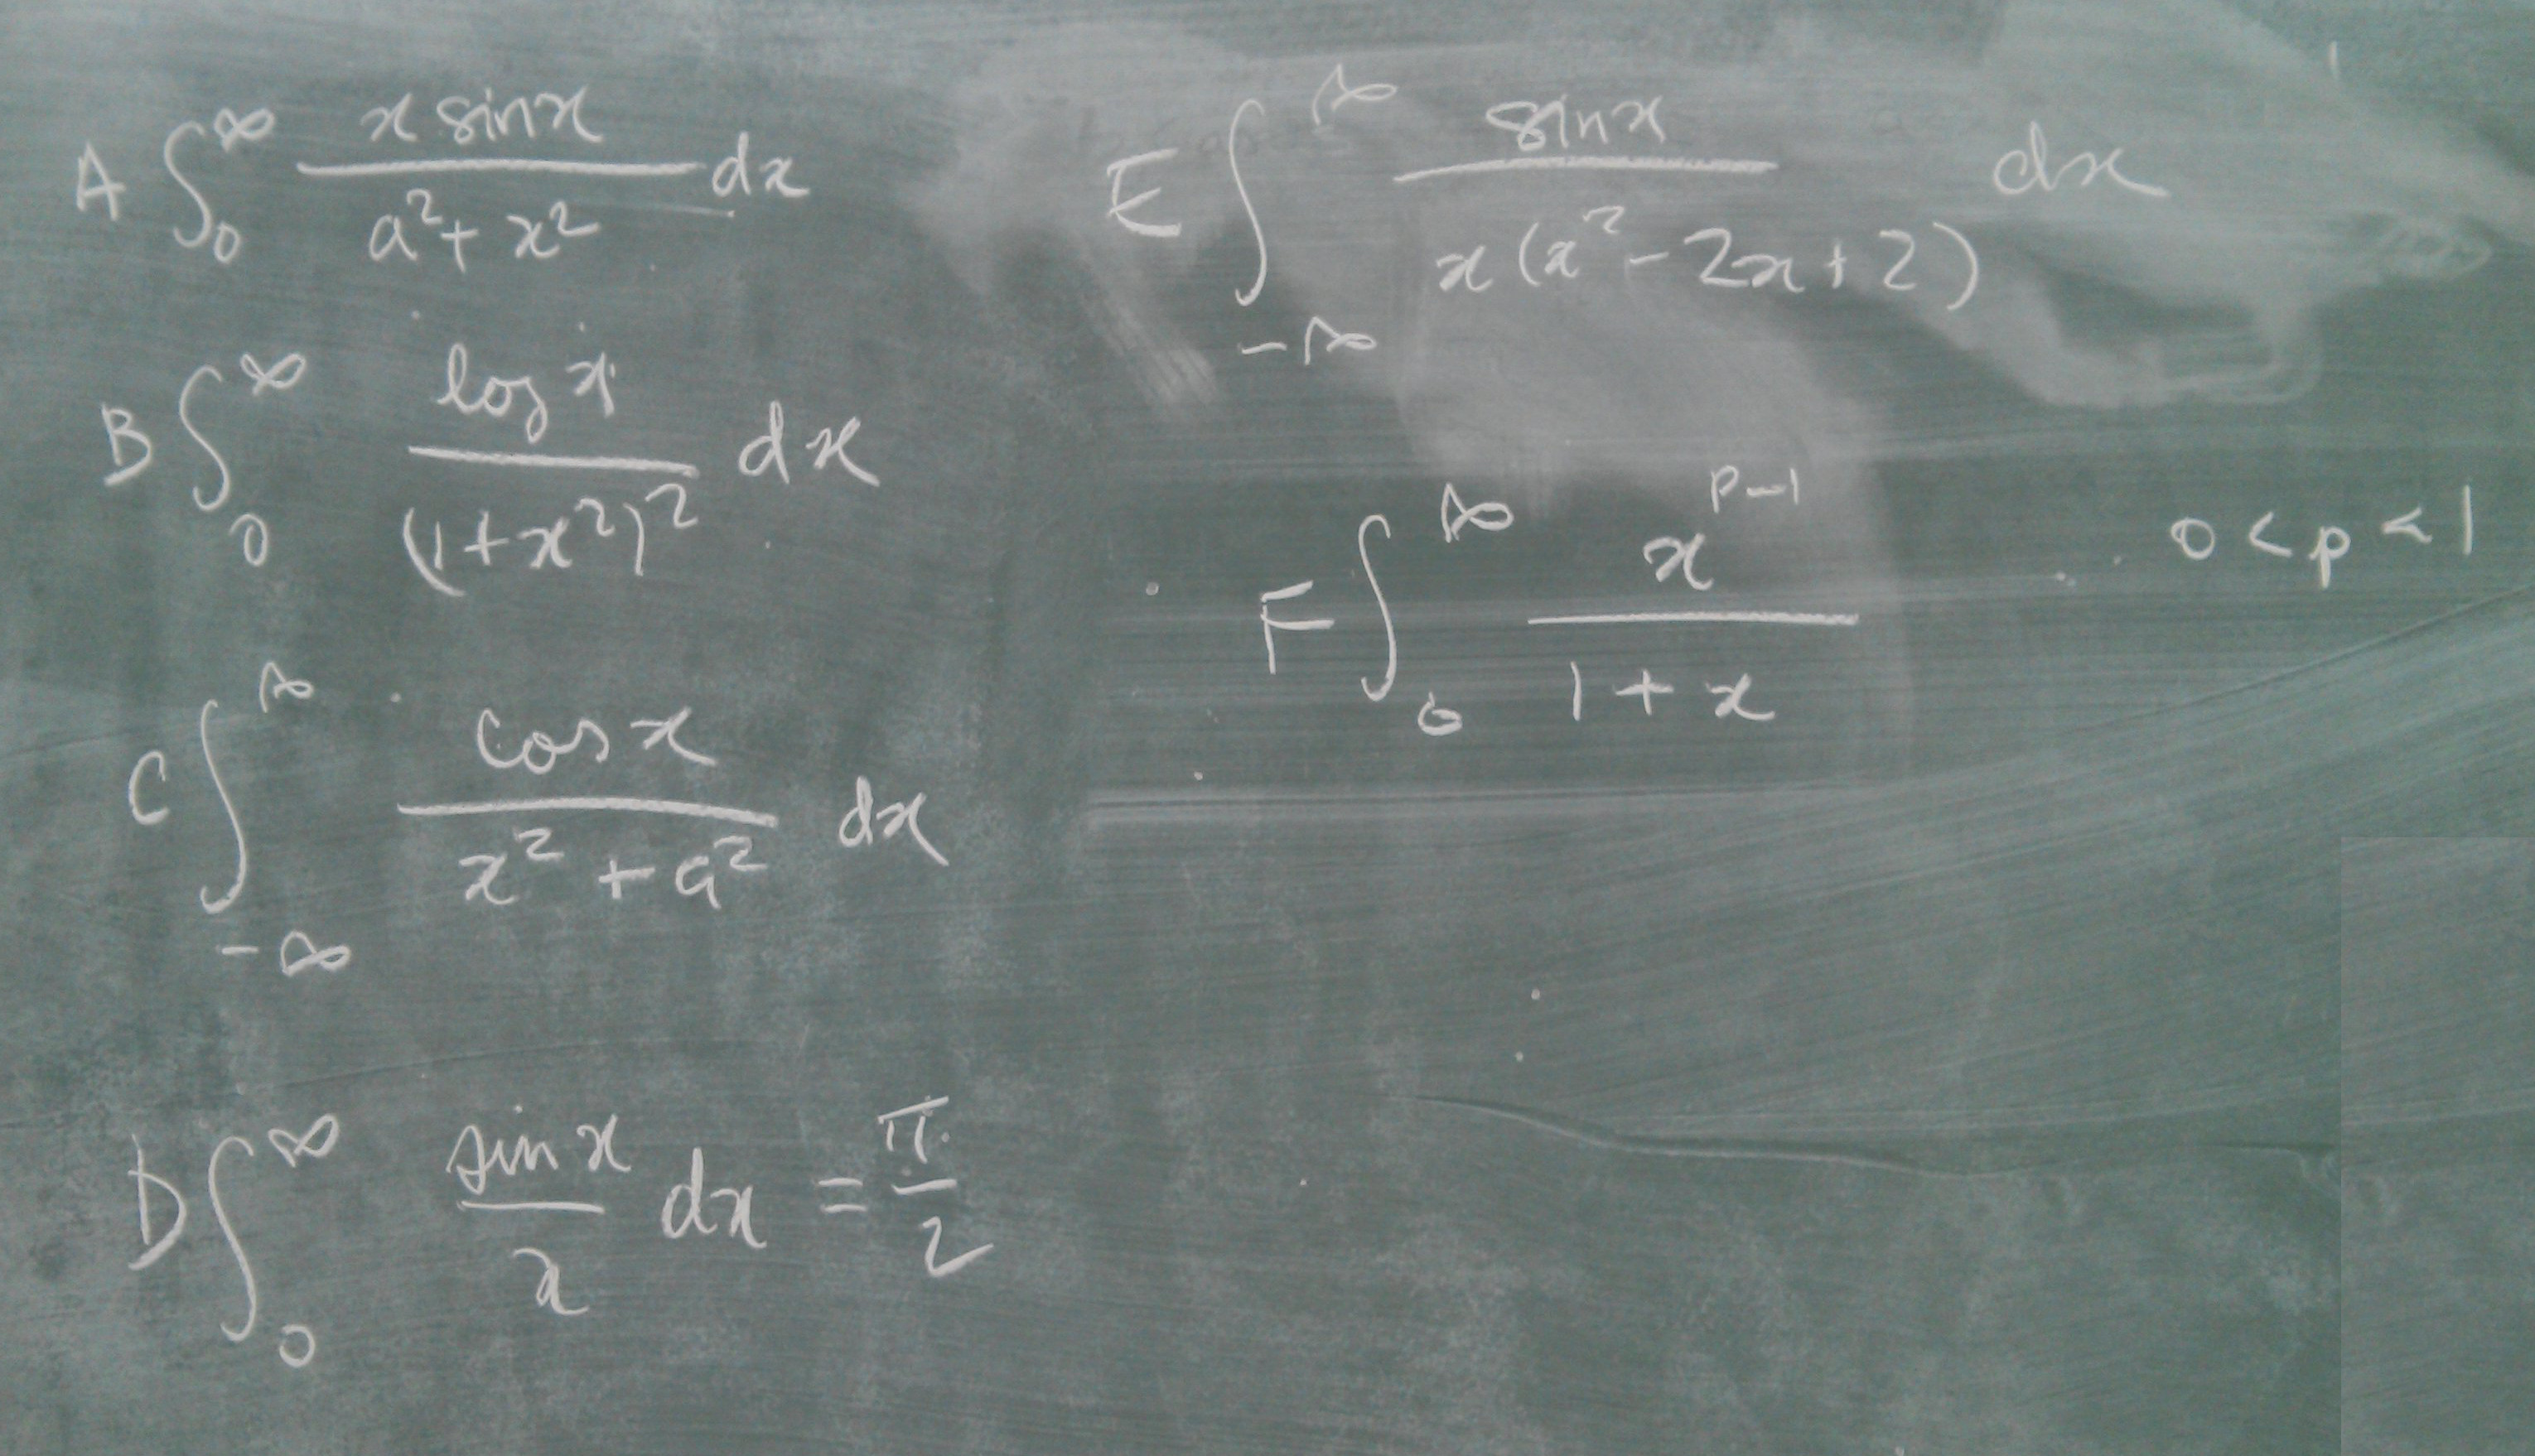 A ∫₀^∞ x sinx / (a² + x²) dx
B ∫₀^∞ log x / (1+x²)² dx
C ∫_{-∞}^∞ cos x / (x² + a²) dx
D ∫₀^∞ sin x / x dx = π/2
E ∫_{-∞}^∞ sinx / (x(x² - 2x + 2)) dx
F ∫₀^∞ x^{p-1} / (1 + x) 0 < p < 1